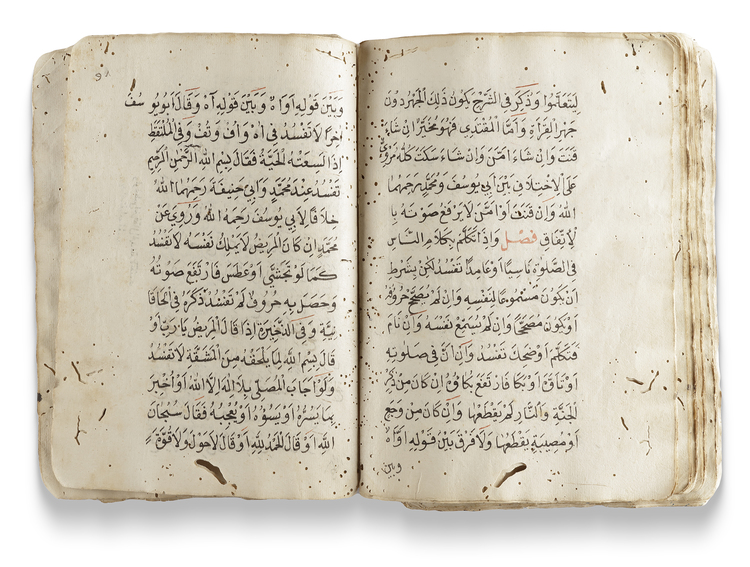 ليتعلموا وذكر في الشرح يكون ذلك الجهر دون
جهر القرأة وأما المقتدى فهو مخير ان شاء
قنت وان شاء امّن وان شاء سكت كله مروي
على الاختلاف بين أبي يوسف ومحمد رحمهما
الله وان قنت أو امّن لا يرفع صوته با
لاتفاق فصل واذا تكلم بكلام الناس
في الصلوة ناسيا أو عامدا تفسد لكن بشرط
ان يكون مسموعا لنفسه وان لم يصحح حروفه
أو يكون مصححا وان لم يسمع نفسه وان نام
فتكلم أو ضحك تفسد وان انّ في صلوته
أو تأوّه أو بكا فارتفع بكاؤه ان كان من ذكر
الجنة والنار لم يقطعها وان كان من وجع
أو مصيبة يقطعها ولا فرق بين قوله اوّاه
وبين
وبين قوله اواه وبين قوله آه وقال أبو يوسف
آخرا لا تفسد في اه واف وتف وفي الملتقط
اذا لسعته الحية فقال بسم الله الرحمن الرحيم
تفسد عند محمد وأبي حنيفة رحمهما الله
خلافا لأبي يوسف رحمه الله وروي عن
محمد ان كان المريض لا يملك نفسه لا تفسد
كما لو تجشى أو عطس فارتفع صوته
وحصل به حروف لم تفسد ذكره في الخاقا
نية وفي الذخيرة اذا قال المريض يا رب أو
قال بسم الله لما يلحقه من المشقة لا تفسد
ولو أجاب المصلي بلا اله الا الله أو أخبر
بما يسره أو يسوؤه أو يعجبه فقال سبحان
الله أو قال الحمد لله أو قال لا حول ولا قوة